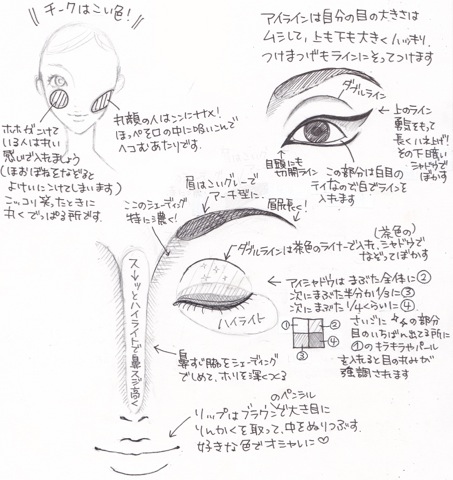 チークはこい色!
アイラインは自分の目の大きさは
ムシして、上も下も大きくハッキリ、
つけまつげもラインにそってつけます
ダブルライン
上のライン
勇気をもって
長くハネ上げ!
その下暗い
シャドウで
ぼかす
目頭にも
切開ライン
この部分は白目の
テイなので白でラインを
入れます
ホホがこけて
いる人は丸い
感じで入れましょう
(ほおぼねをなどると
よけいにこけてしまいます)
ニッコリ笑ったときに
丸くでっぱる所です。
丸顔の人はここにナナメ!
ほっぺを口の中に吸いこんで
ヘコむあたりです。
眉はこいグレーで
アーチ型に、
眉尻長く!
ここのシェーディング
特に濃く!
(茶色の)
ダブルラインは茶色のライナーで入れ、シャドウで
などってぼかす
アイシャドウはまぶた全体に②
次にまぶた半分か1/3に③
次にまぶた1/4くらいに④
さいごに の部分
目のいちばん出てる所に
①のキラキラやパール
を入れると目の丸みが
強調されます
① ②
③ ④
ハイライト
スーッとハイライトで鼻スジ高く
鼻すじ脇をシェーディング
でしめて、ホリを深くつくる
のペンシル
リップはブラウンで大き目に
りんかくを取って、中をぬりつぶす。
好きな色でオシャレに♡